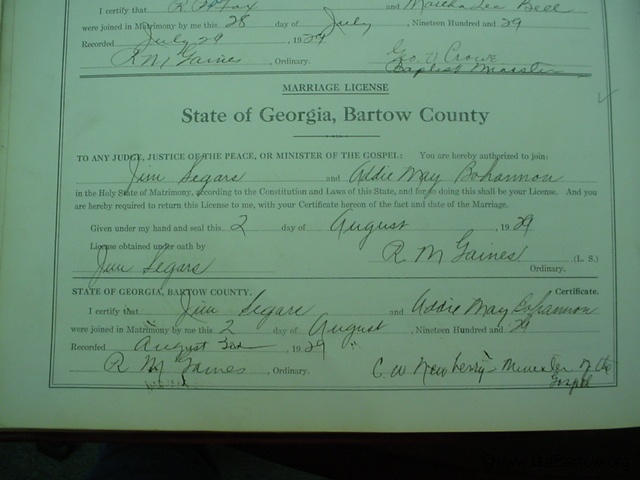 I certify that R O Fox and Martha Lee Bell
were joined in Matrimony by me this 28 day of July, Nineteen Hundred and 29
Recorded July 29, 1929
R M Gaines, Ordinary. Geo. V. Crowe
Baptist Minister
MARRIAGE LICENSE
State of Georgia, Bartow County
TO ANY JUDGE, JUSTICE OF THE PEACE, OR MINISTER OF THE GOSPEL: You are hereby authorized to join:
Jim Segars and Addie May Bohannon
in the Holy State of Matrimony, according to the Constitution and Laws of this State, and for so doing this shall be your License. And you
are hereby required to return this License to me, with your Certificate hereon of the fact and date of the Marriage.
Given under my hand and seal this 2 day of August, 1929
License obtained under oath by R. M Gaines (L. S.)
Jim Segars Ordinary.
STATE OF GEORGIA, BARTOW COUNTY. Certificate.
I certify that Jim Segars and Addie May Bohannon
were joined in Matrimony by me this 2 day of August, Nineteen Hundred and 29
Recorded August 3rd, 1929
R M Gaines, Ordinary. C. W. Newberry - Minister of the
Gospel